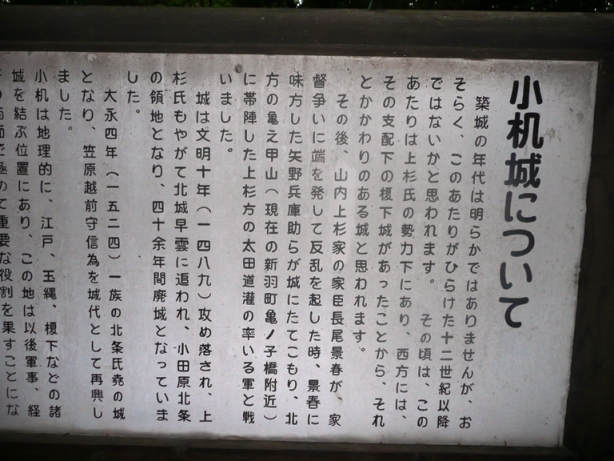 小机城について
築城の年代は明らかではありませんが、お
そらく、このあたりがひらけた十二世紀以降
ではないかと思われます。 その頃は、この
あたりは上杉氏の勢力下にあり、西方には、
その支配下の榎下城があったことから、それ
とかかわりのある城と思われます。
その後、山内上杉家の家臣長尾景春が、家
督争いに端を発して反乱を起した時、景春に
味方した矢野兵庫助らが城にたてこもり、北
方の亀之甲山(現在の新羽町亀ノ子橋附近)
に帯陣した上杉方の太田道灌の率いる軍と戦
いました。
城は文明十年(一四八九)攻め落され、上
杉氏もやがて北城早雲に追われ、小田原北条
の領地となり、四十余年間廃城となっていま
した。
大永四年(一五二四)一族の北条氏堯の城
となり、笠原越前守信為を城代として再興し
ました。
小机は地理的に、江戸、玉縄、榎下などの諸
城を結ぶ位置にあり、この地は以後軍事、経
の両面で極めて重要な役割を果すことにな